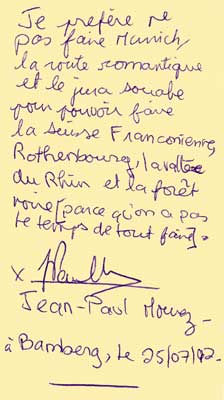 Je préfère ne
pas faire Munich,
la route romantique
et le jura souabe
pour pouvoir faire
la Suisse Franconienne,
Rothenbourg, la vallée
du Rhin et la forêt
noire [parce qu'on a pas
le temps de tout faire].
x
Jean-Paul
à Bamberg, le 25/07/02.